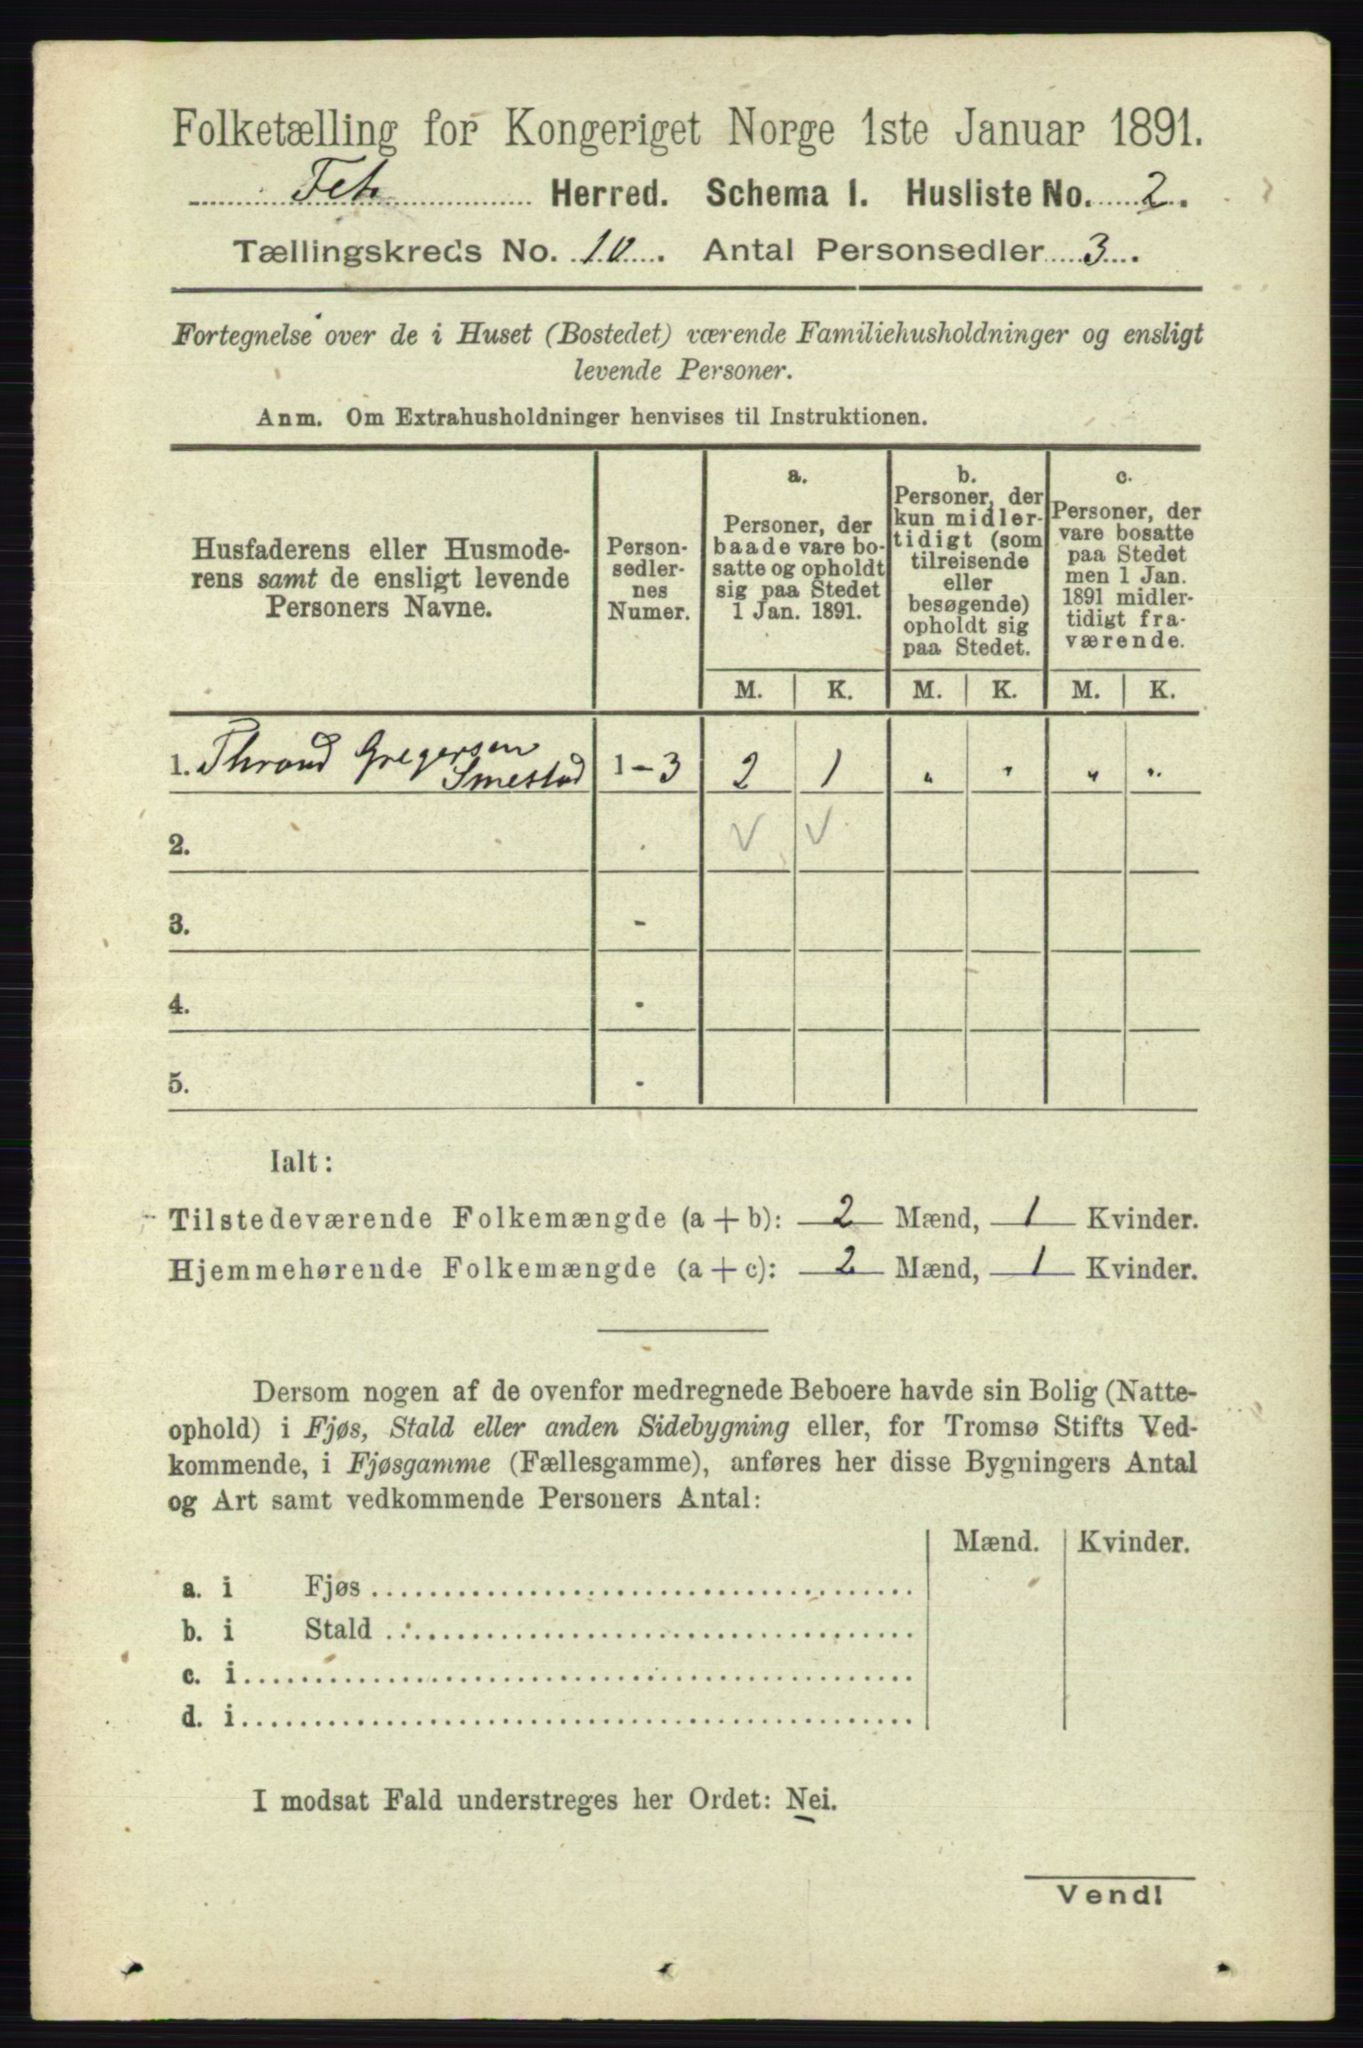 Folketælling for Kongeriget Norge 1ste Januar 1891.
Fet Herred. Schema 1. Husliste No. 2.
Tællingskreds No. 10. Antal Personsedler 3.
Fortegnelse over de i Huset (Bostedet) værende Familiehusholdninger og ensligt
levende Personer.
Anm. Om Extrahusholdninger henvises til Instruktionen.
Husfaderens eller Husmode-
rens samt de ensligt levende
Personers Navne.
Person-
sedler-
nes
Numer.
a.
Personer, der
baade vare bo-
satte og opholdt
sig paa Stedet
1 Jan. 1891.
b.
Personer, der
kun midler-
tidigt (som
tilreisende
eller
besøgende)
opholdt sig
paa Stedet.
c.
Personer, der
vare bosatte
paa Stedet
men 1 Jan.
1891 midler-
tidigt fra-
værende.
M. K. M. K. M. K.
1. Thrond Gregersen
Smestad 1-3 2 1 " " " "
2. V V
3. -
4. -
5. -
Ialt:
Tilstedeværende Folkemængde (a + b): 2 Mænd, 1 Kvinder.
Hjemmehørende Folkemængde (a + c): 2 Mænd, 1 Kvinder.
Dersom nogen af de ovenfor medregnede Beboere havde sin Bolig (Natte-
ophold) i Fjøs, Stald eller anden Sidebygning eller, for Tromsø Stifts Ved-
kommende, i Fjøsgamme (Fællesgamme), anføres her disse Bygningers Antal
og Art samt vedkommende Personers Antal:
Mænd. Kvinder.
a. i Fjøs
b. i Stald
c. i
d. i
I modsat Fald understreges her Ordet: Nei.
Vend!